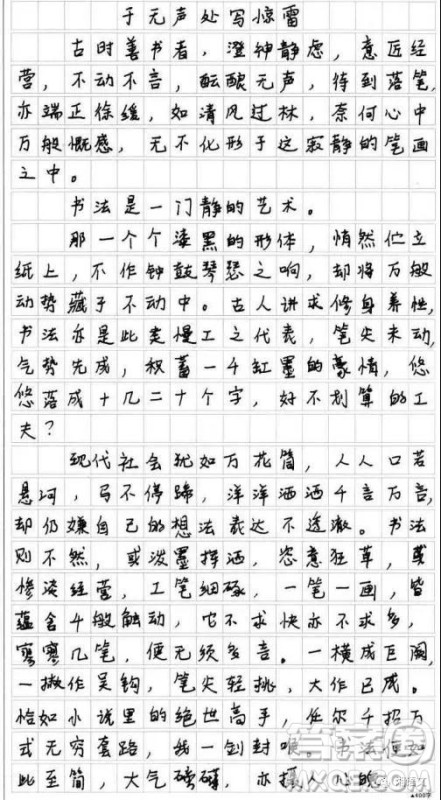 于无声处写惊雷
古时善书者，澄神静虑，意匠经
营，不动不言，酝酿无声，待到落笔，
亦端正徐缓，如清风过林，奈何心中
万般慨感，无不化形于这寂静的笔画
之中。
书法是一门静的艺术。
那一个个漆黑的形体，悄然伫立
纸上，不作钟鼓琴瑟之响，却将万般
动势藏于不动中。古人讲求修身养性，
书法亦是此类慢工之代表，笔尖未动，
气势先成，权蓄一千缸墨的豪情，悠
悠落成十几二十个字，好不划算的工
夫？
现代社会犹如万花筒，人人口若
悬河，马不停蹄，洋洋洒洒千言万言，
却仍嫌自己的想法表达不透澈。书法
则不然，或泼墨挥洒，恣意狂草，或
惨淡经营，工笔细琢，一笔一画，皆
蕴含千般触动，它不求快亦不求多，
寥寥几笔，便无须多言。一横成巨阙，
一撇作吴钩，笔尖轻挑，大作已成。
恰如小说里的绝世高手，任尔千招万
式无穷套路，我一剑封喉。书法便如
此至简，大气磅礴，亦摄人心魄
▲400字